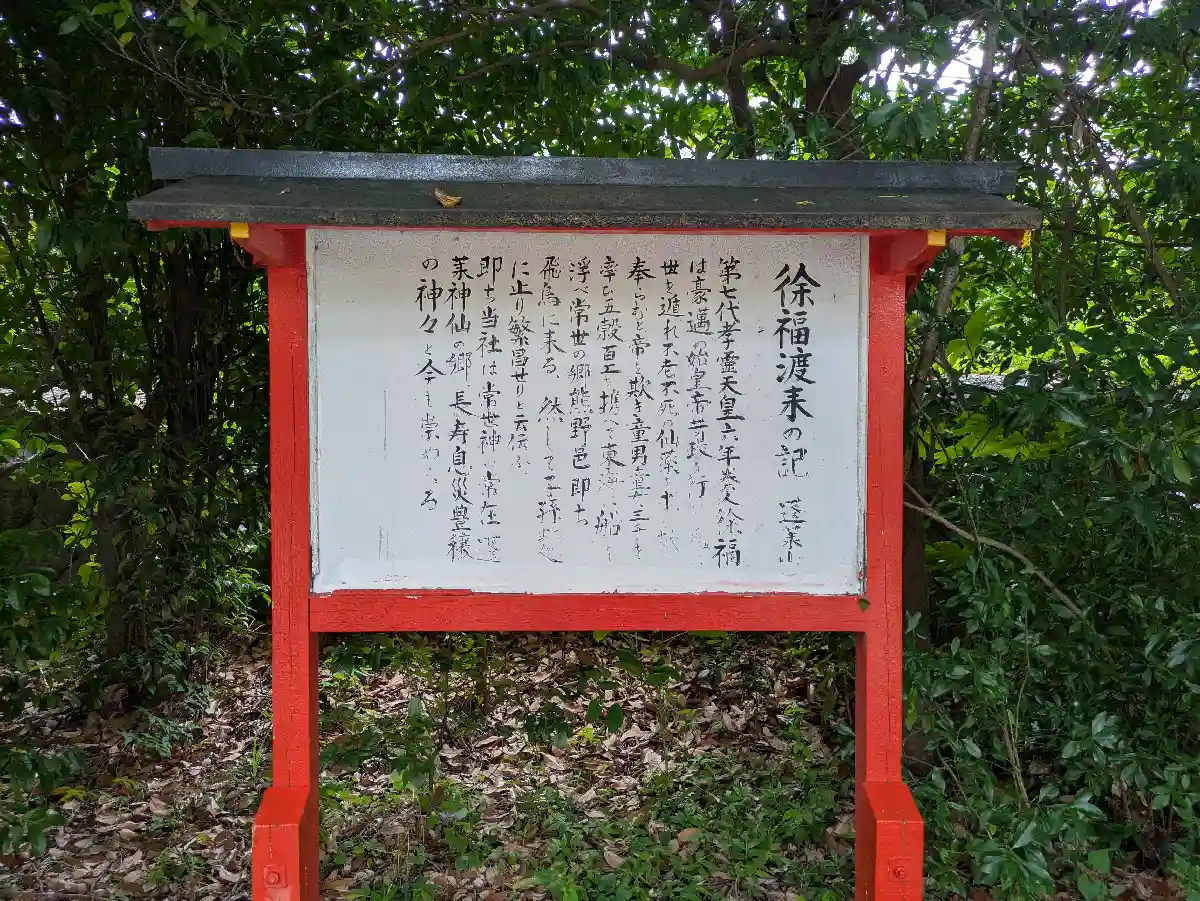 徐福渡来の記 蓬莱山
第七代孝霊天皇六年 徐福
は豪邁の始皇帝 行
世を遁れ不老不死の仙薬を
奉らむと帝を欺き童男童 三千を
率ひ五穀百工を携へ東海 船を
浮べ常世の郷熊野邑即ち
飛鳥に来る、然して子孫
に止り繁昌せりと云伝ふ
即ち当社は常世神 常在 蓬
莱神仙の郷長寿息災豊穣
の神々と今も崇め る